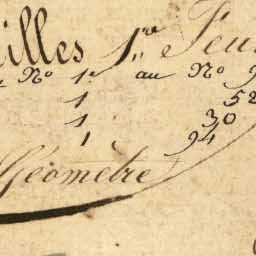 illes 1.re Feu
N.o 1.er au N.o 9
1 52
1 30
1 94
Géometre